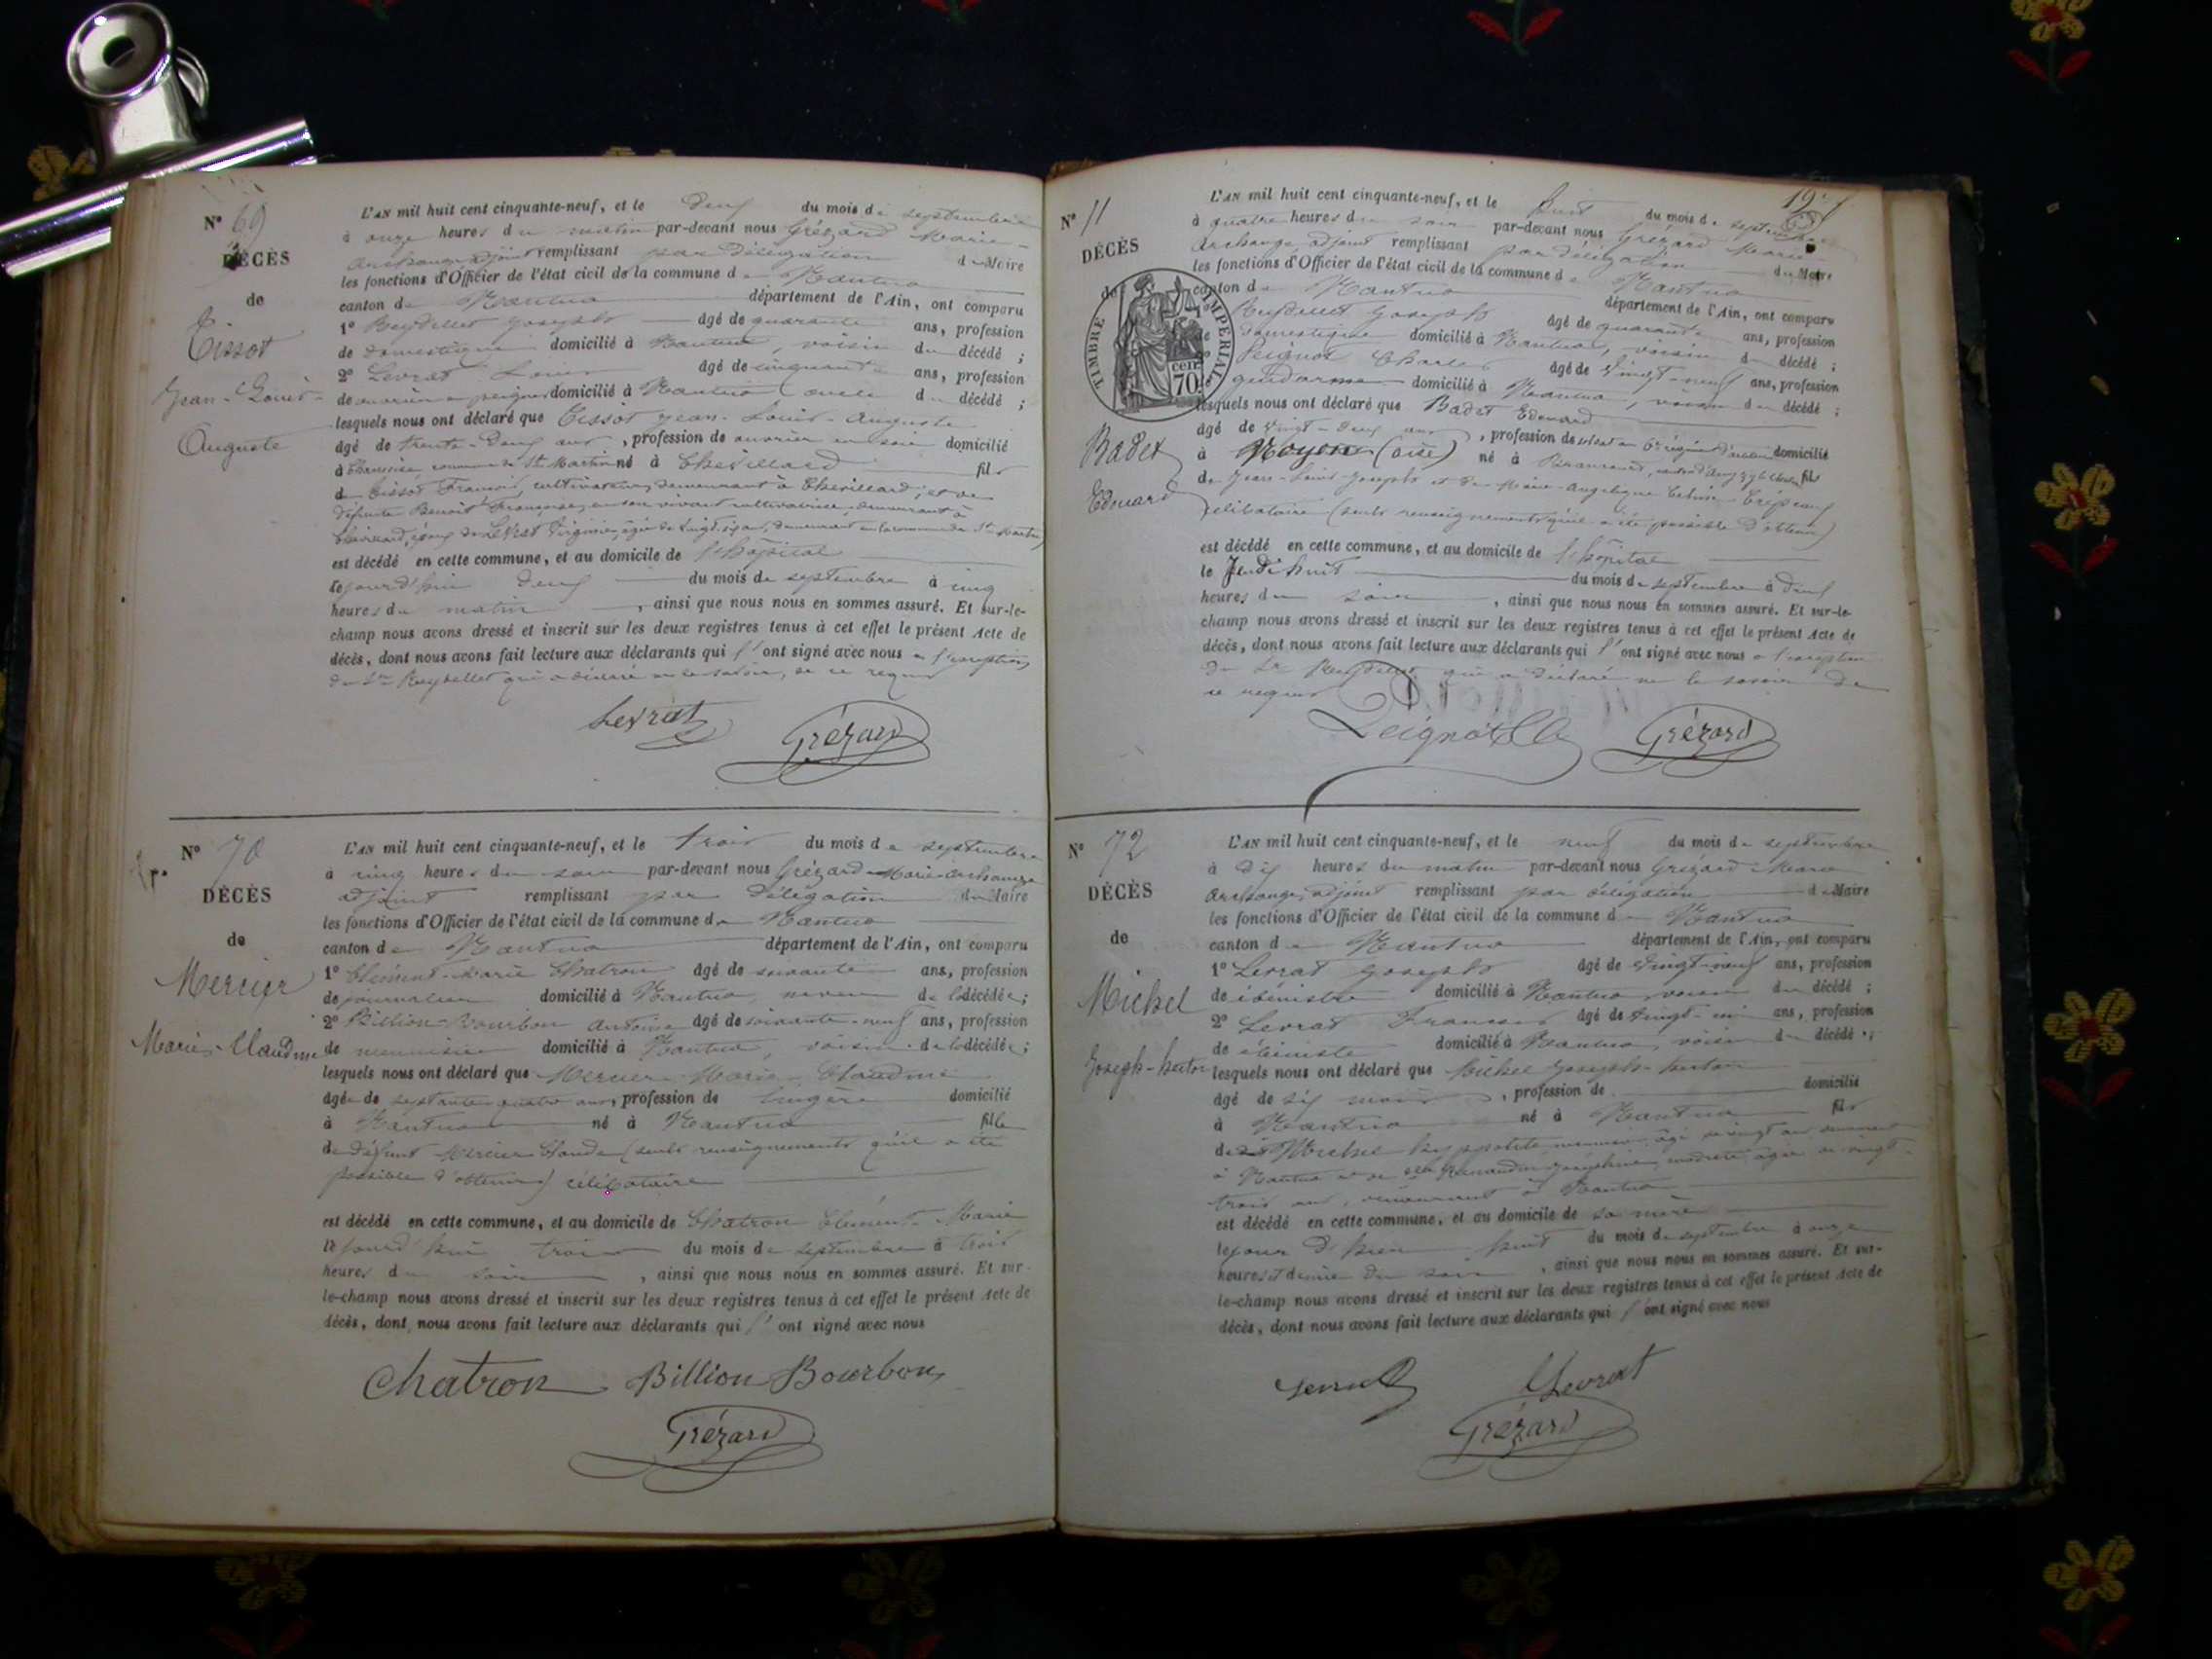 N° 69
DÉCÈS
de
Tissot
Jean-Louis-
Auguste
L'AN mil huit cent cinquante-neuf, et le deux du mois de septembre
à onze heures du matin par-devant nous Grézard Marie-
Archange, adjoint remplissant par délégation du Maire
les fonctions d'Officier de l'état civil de la commune de Nantua
canton de Nantua département de l'Ain, ont comparu
1° Reydellet Joseph âgé de quarante ans, profession
de domestique domicilié à Nantua, voisin du décédé ;
2° Levrat Louis âgé de cinquante ans, profession
de ouvrier en peignes domicilié à Nantua (oncle du décédé ;
lesquels nous ont déclaré que Tissot Jean-Louis-Auguste
âgé de trente-deux ans, profession de ouvrier en soie domicilié
à commune de St Martin né à Chevillard fils
de Tissot François, cultivateur, demeurant à Chevillard, et de
défunte Benoit Françoise, en son vivant cultivatrice, demeurant à
Chevillard, époux de Levrat Virginie, âgée de vingt-six ans, demeurant en la commune de St Martin
est décédé en cette commune, et au domicile de l'hôpital
le jourd'hui deux du mois de septembre à cinq
heures du matin, ainsi que nous nous en sommes assuré. Et sur-le-
champ nous avons dressé et inscrit sur les deux registres tenus à cet effet le présent Acte de
décès, dont nous avons fait lecture aux déclarants qui l'ont signé avec nous à l'exception
du Sr Reydellet qui a déclaré ne le savoir, de ce requis
Levrat
Grézard
N° 70
DÉCÈS
de
Mercier
Marie-Claudine
L'AN mil huit cent cinquante-neuf, et le trois du mois de septembre
à cinq heures du soir par-devant nous Grézard Marie-Archange
adjoint remplissant par délégation du Maire
les fonctions d'Officier de l'état civil de la commune de Nantua
canton de Nantua département de l'Ain, ont comparu
1° Clément-Marie Chatron âgé de soixante ans, profession
de journalier domicilié à Nantua, neveu de la décédée ;
2° Billion-Bourbon Antoine âgé de soixante-neuf ans, profession
de menuisier domicilié à Nantua, voisin de la décédée ;
lesquels nous ont déclaré que Mercier Marie-Claudine
âgée de septante-quatre ans, profession de lingère domicilié
à Nantua né à Nantua fille
de défunt Mercier Claude (seuls renseignements qu'il a été
possible d'obtenir) célibataire
est décédé en cette commune, et au domicile de Chatron Clément-Marie
le jourd'hui trois du mois de septembre à trois
heures du soir, ainsi que nous nous en sommes assuré. Et sur-
le-champ nous avons dressé et inscrit sur les deux registres tenus à cet effet le présent Acte de
décès, dont nous avons fait lecture aux déclarants qui l'ont signé avec nous
Chatron Billion Bourbon
Grézard
N° 71
DÉCÈS
de
TIMBRE IMPÉRIAL
70 cen.
Badet
Edouard
L'AN mil huit cent cinquante-neuf, et le huit du mois de septembre
à quatre heures du soir par-devant nous Grézard Marie-
Archange, adjoint remplissant par délégation du Maire
les fonctions d'Officier de l'état civil de la commune de Nantua
canton de Nantua département de l'Ain, ont comparu
Reydellet Joseph âgé de quarante ans, profession
de domestique domicilié à Nantua, voisin du décédé ;
Peignot Charles âgé de vingt-neuf ans, profession
gendarme domicilié à Nantua, voisin du décédé ;
lesquels nous ont déclaré que Badet Edouard
âgé de vingt-deux ans, profession de soldat au domicilié
à Noyon (oise) né à fils
de Jean-Louis-Joseph et de Marie-Angélique
célibataire (seuls renseignements qu'il a été possible d'obtenir)
est décédé en cette commune, et au domicile de l'hôpital
le Jeudi huit du mois de septembre à deux
heures du soir, ainsi que nous nous en sommes assuré. Et sur-le-
champ nous avons dressé et inscrit sur les deux registres tenus à cet effet le présent Acte de
décès, dont nous avons fait lecture aux déclarants qui l'ont signé avec nous à l'exception
du Sr Reydellet qui a déclaré ne le savoir de
ce requis
Peignot Ch
Grézard
N° 72
DÉCÈS
de
Michel
Joseph-hector
L'AN mil huit cent cinquante-neuf, et le neuf du mois de septembre
à dix heures du matin par-devant nous Grézard Marie
Archange, adjoint remplissant par délégation du Maire
les fonctions d'Officier de l'état civil de la commune de Nantua
canton de Nantua département de l'Ain, ont comparu
1° Levrat Joseph âgé de vingt-neuf ans, profession
de ébéniste domicilié à Nantua, voisin du décédé ;
2° Levrat François âgé de vingt-un ans, profession
de ébéniste domicilié à Nantua, voisin du décédé ;
lesquels nous ont déclaré que Michel Joseph-hector
âgé de six mois, profession de domicilié
à Nantua né à Nantua fils
de Michel hippolyte, menuisier, âgé de vingt ans demeurant
à Nantua et de Joséphine, modiste, âgée de vingt-
trois ans, demeurant à Nantua
est décédé en cette commune, et au domicile de sa mère
le jour d'hier huit du mois de septembre à onze
heures et demie du soir, ainsi que nous nous en sommes assuré. Et sur-
le-champ nous avons dressé et inscrit sur les deux registres tenus à cet effet le présent Acte de
décès, dont nous avons fait lecture aux déclarants qui l'ont signé avec nous
Levrat
Grézard